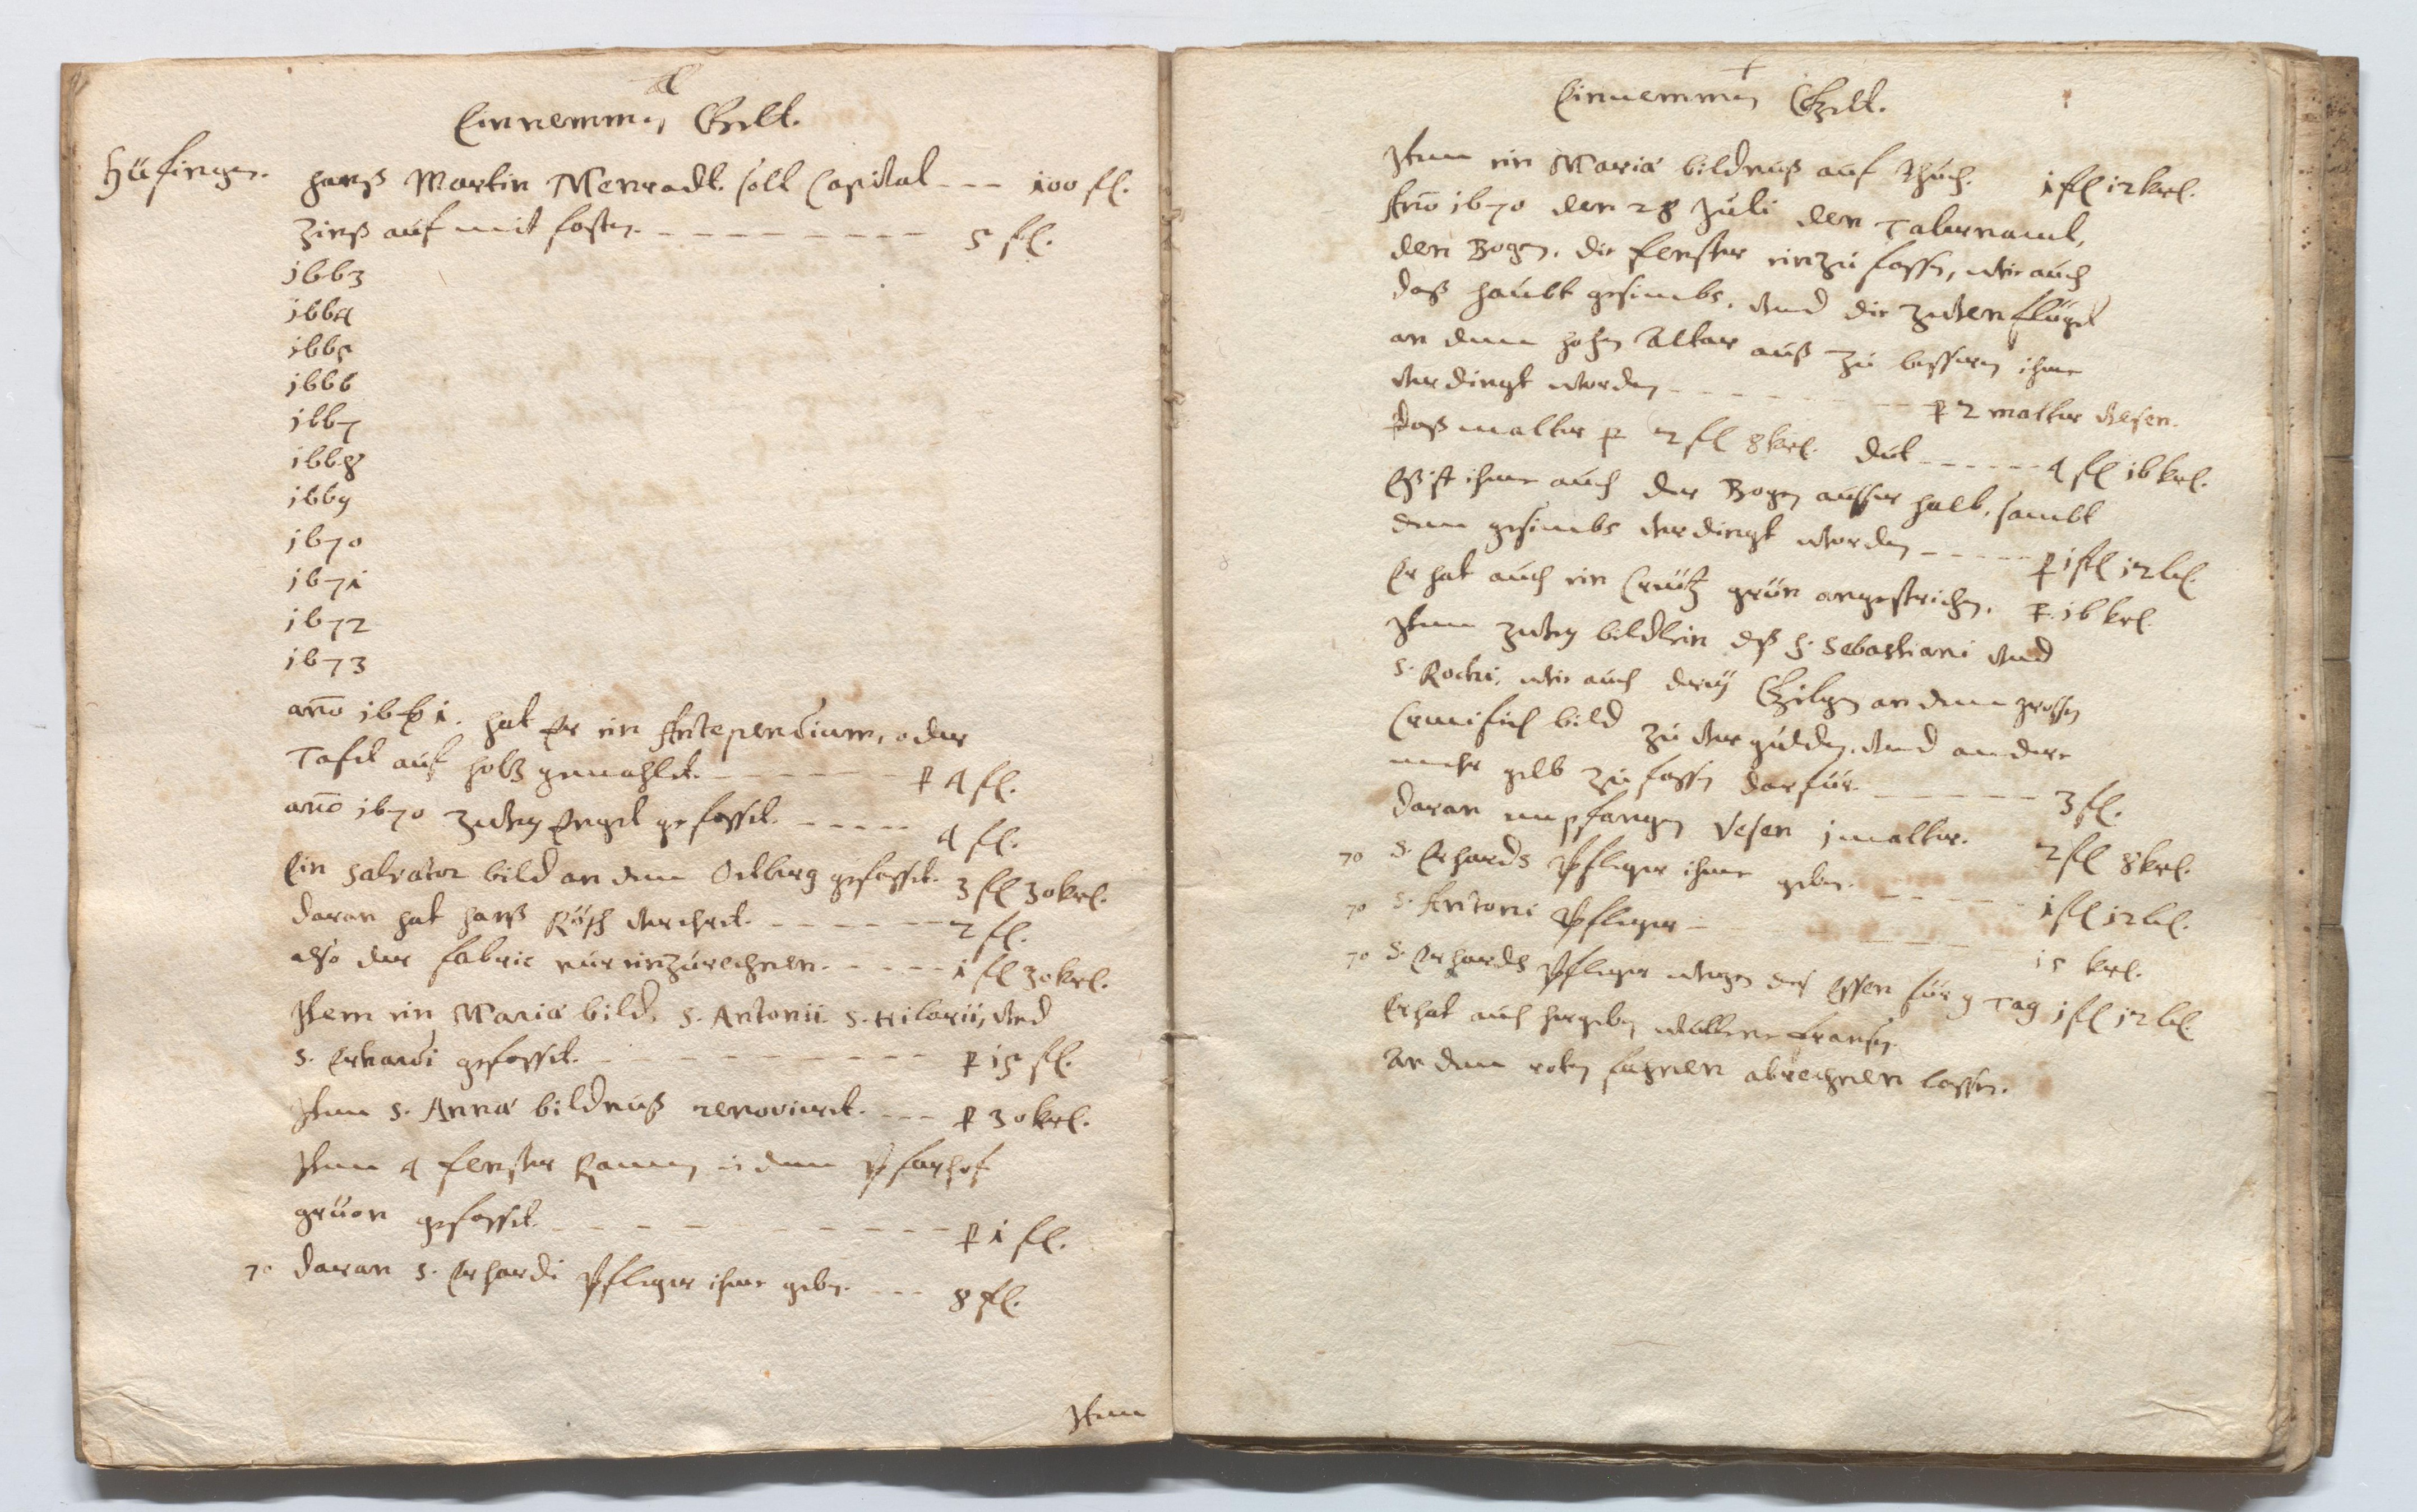 Einnemmen Gelt.
Hüfingen. Hanß Martin Menradt. soll Capital --- 100 fl.
Zinß auf mit fasten. --------- 5 fl.
1663
1664
1665
1666
1667
1668
1669
1670
1671
1672
1673
anno 1661. hat Er ein Antependium, oder
Tafel auf holtz gemahlet. ------ p 4 fl.
anno 1670 zwey Engel gefasset. ----- 4 fl.
Ein Salvator bild an dem Oelberg gefasset. 3 fl 30 krl.
daran hat Hanß Rösch verehret. ------ 2 fl.
also der fabric nur einzurechnen. ----- 1 fl 30 krl.
Item ein Mariä bild, S. Antonii S. Hilarii, vnd
S. Erhardi gefasset. ---------- p 15 fl.
Item S. Annä bildnuß renovieret. --- p 30 krl.
Item 4 fenster Ramen in dem Pfarhof
grüen gefasset. ---------- p 1 fl.
70 daran S. Erhardi Pfleger ihme geben. --- 8 fl.
Item
Einnemmen Gelt.
Item ein Mariä bildnuß auf Thuch. 1 fl 12 krl.
Anno 1670 den 28 Juli den Tabernacul,
den Bogen, die fenster einzufassen, wie auch
daß haubt gesimbs, vnd die zwen flügel
an dem hohen Altar auß zu bessern ihme
verdingt worden ------ p 2 malter Vesen.
daß malter p 2 fl 8 krl. dut ------ 4 fl 16 krl.
Eß ist ihme auch der Bogen ausser halb, sambt
dem gesimbs verdingt worden ----- p 1 fl 12 krl.
Er hat auch ein Creütz grün angestrichen. p. 16 krl.
Item zwey bildlein deß H. Sebastiani vnd
S. Rochi, wie auch drey Gilgen an dem grossen
Crucifix bild zu vergulden, vnd andere
mehr gelb zu fassen darfür. ------ 3 fl.
daran empfangen Vesen 1 malter. 2 fl 8 krl.
70 S. Erhards Pfleger ihme geben. ----- 1 fl 12 krl.
70 S. Antoni Pfleger ------ 15 krl.
70 S. Erhards Pfleger wegen des Essen für 9 Tag 1 fl 12 krl.
Er hat auch hergeben wullene fransen
an dem roten fahnen abrechnen lassen.